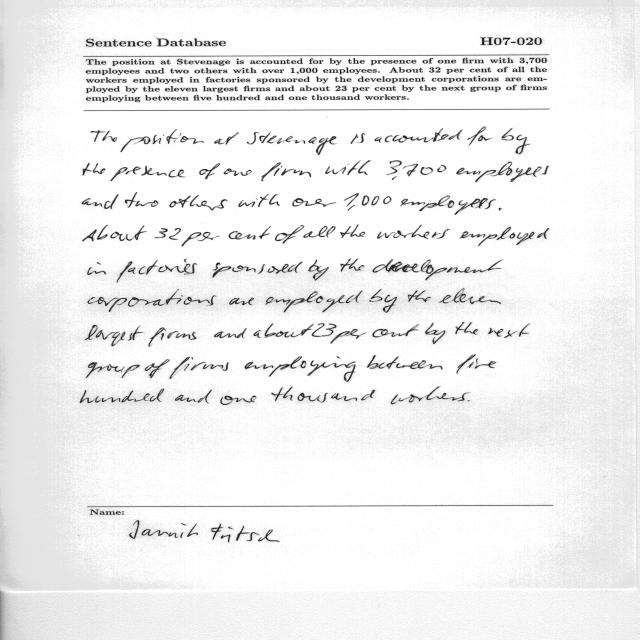 Sentence Database H07-020
The position at Stevenage is accounted for by the presence of one firm with 3,700
employees and two others with over 1,000 employees. About 32 per cent of all the
workers employed in factories sponsored by the development corporations are em-
ployed by the eleven largest firms and about 23 per cent by the next group of firms
employing between five hundred and one thousand workers.
The position at Stevenage is accounted for by
the presence of one firm with 3,700 employees
and two others with over 1,000 employees.
About 32 per cent of all the workers employed
in factories sponsored by the development
corporations are employed by the eleven
largest firms and about 23 per cent by the next
group of firms employing between five
hundred and one thousand workers.
Name:
Jannik Fritsch